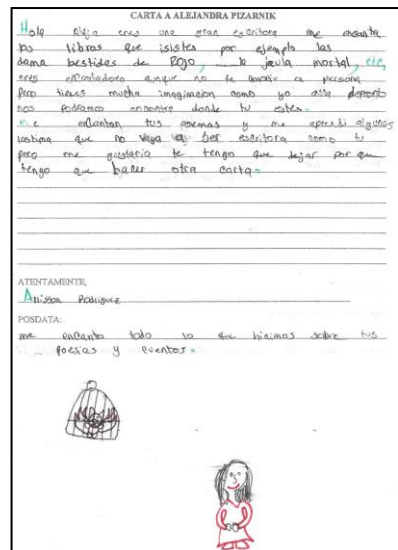 CARTA A ALEJANDRA PIZARNIK
Hola Aleja eres una gran escritora me encanta
los libros que isistes por ejemplo las
dama bestidas de Rojo, la jaula mortal, etc,
eres encantadora aunque no te conosco en persona
pero tienes mucha imaginacion como yo asta
nos podramos encontre donde tu estes.
me encantan tus poemas y me aprendi algunos
lastima que no vaya a ser escritora como tu
pero me gustaria te tengo que dejar por que
tengo que hacer otra carta.
ATENTAMENTE,
Allisson Rodriguez
POSDATA:
me encanto todo lo que hicimos sobre tus
poesias y cuentos.